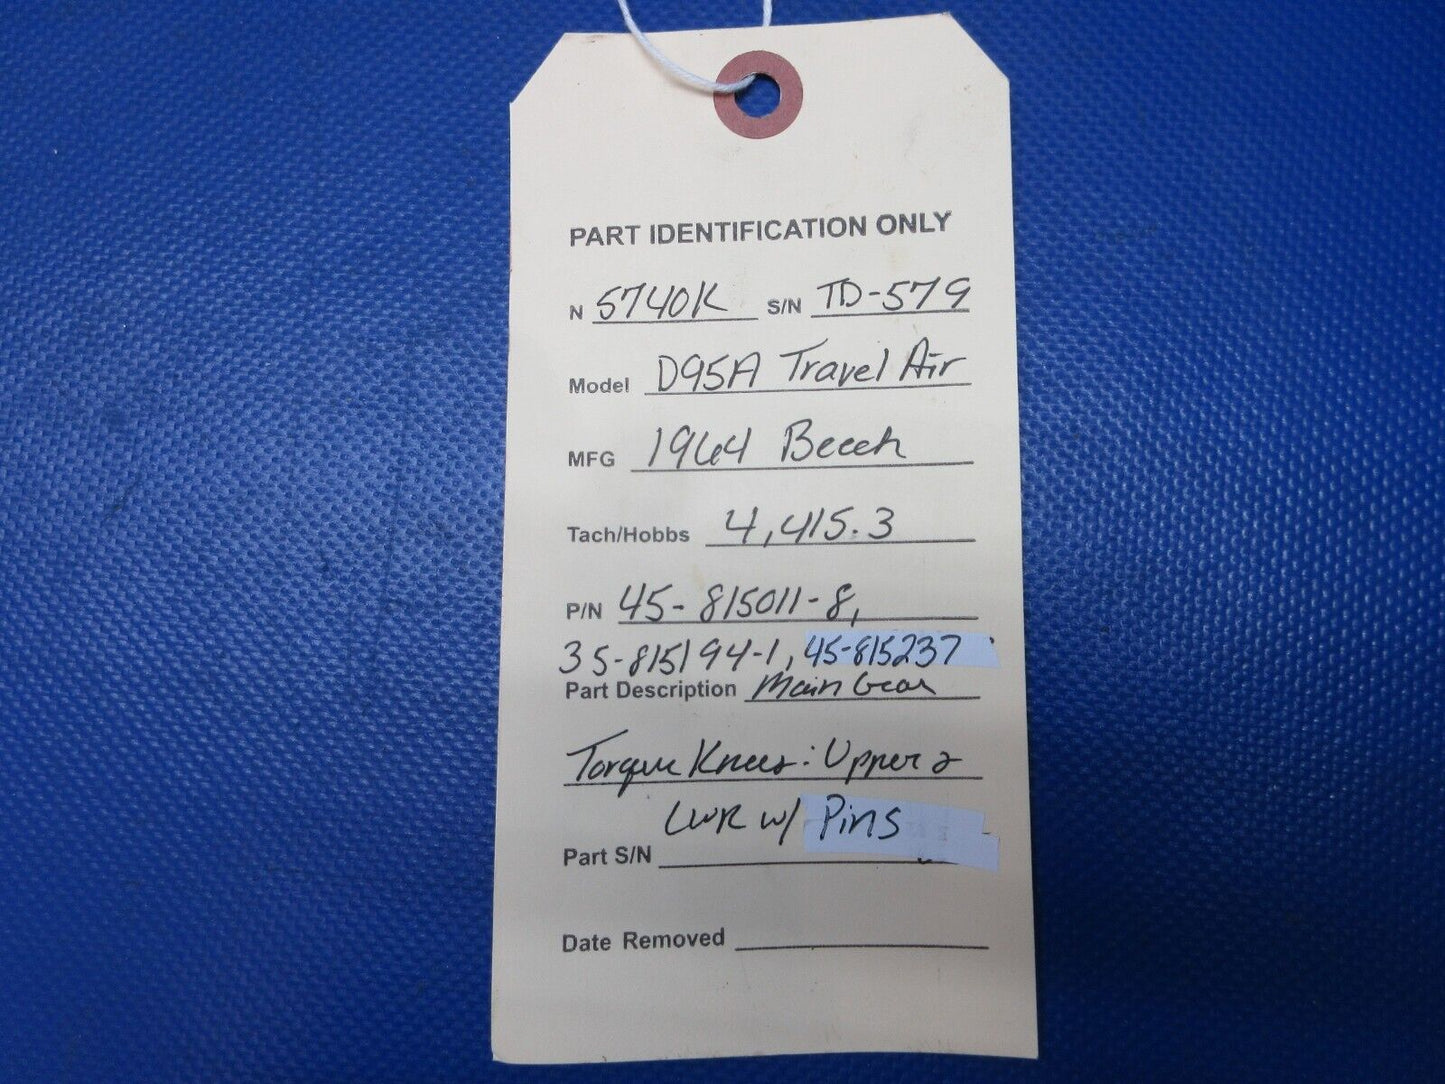 PART IDENTIFICATION ONLY
N 5740K S/N TD-579
Model D95A Travel Air
MFG 1964 Beech
Tach/Hobbs 4,415.3
P/N 45-815011-8,
35-815194-1, 45-815237
Part Description Main Gear
Torque Knees: Upper &
LWR w/ Pins
Part S/N
Date Removed